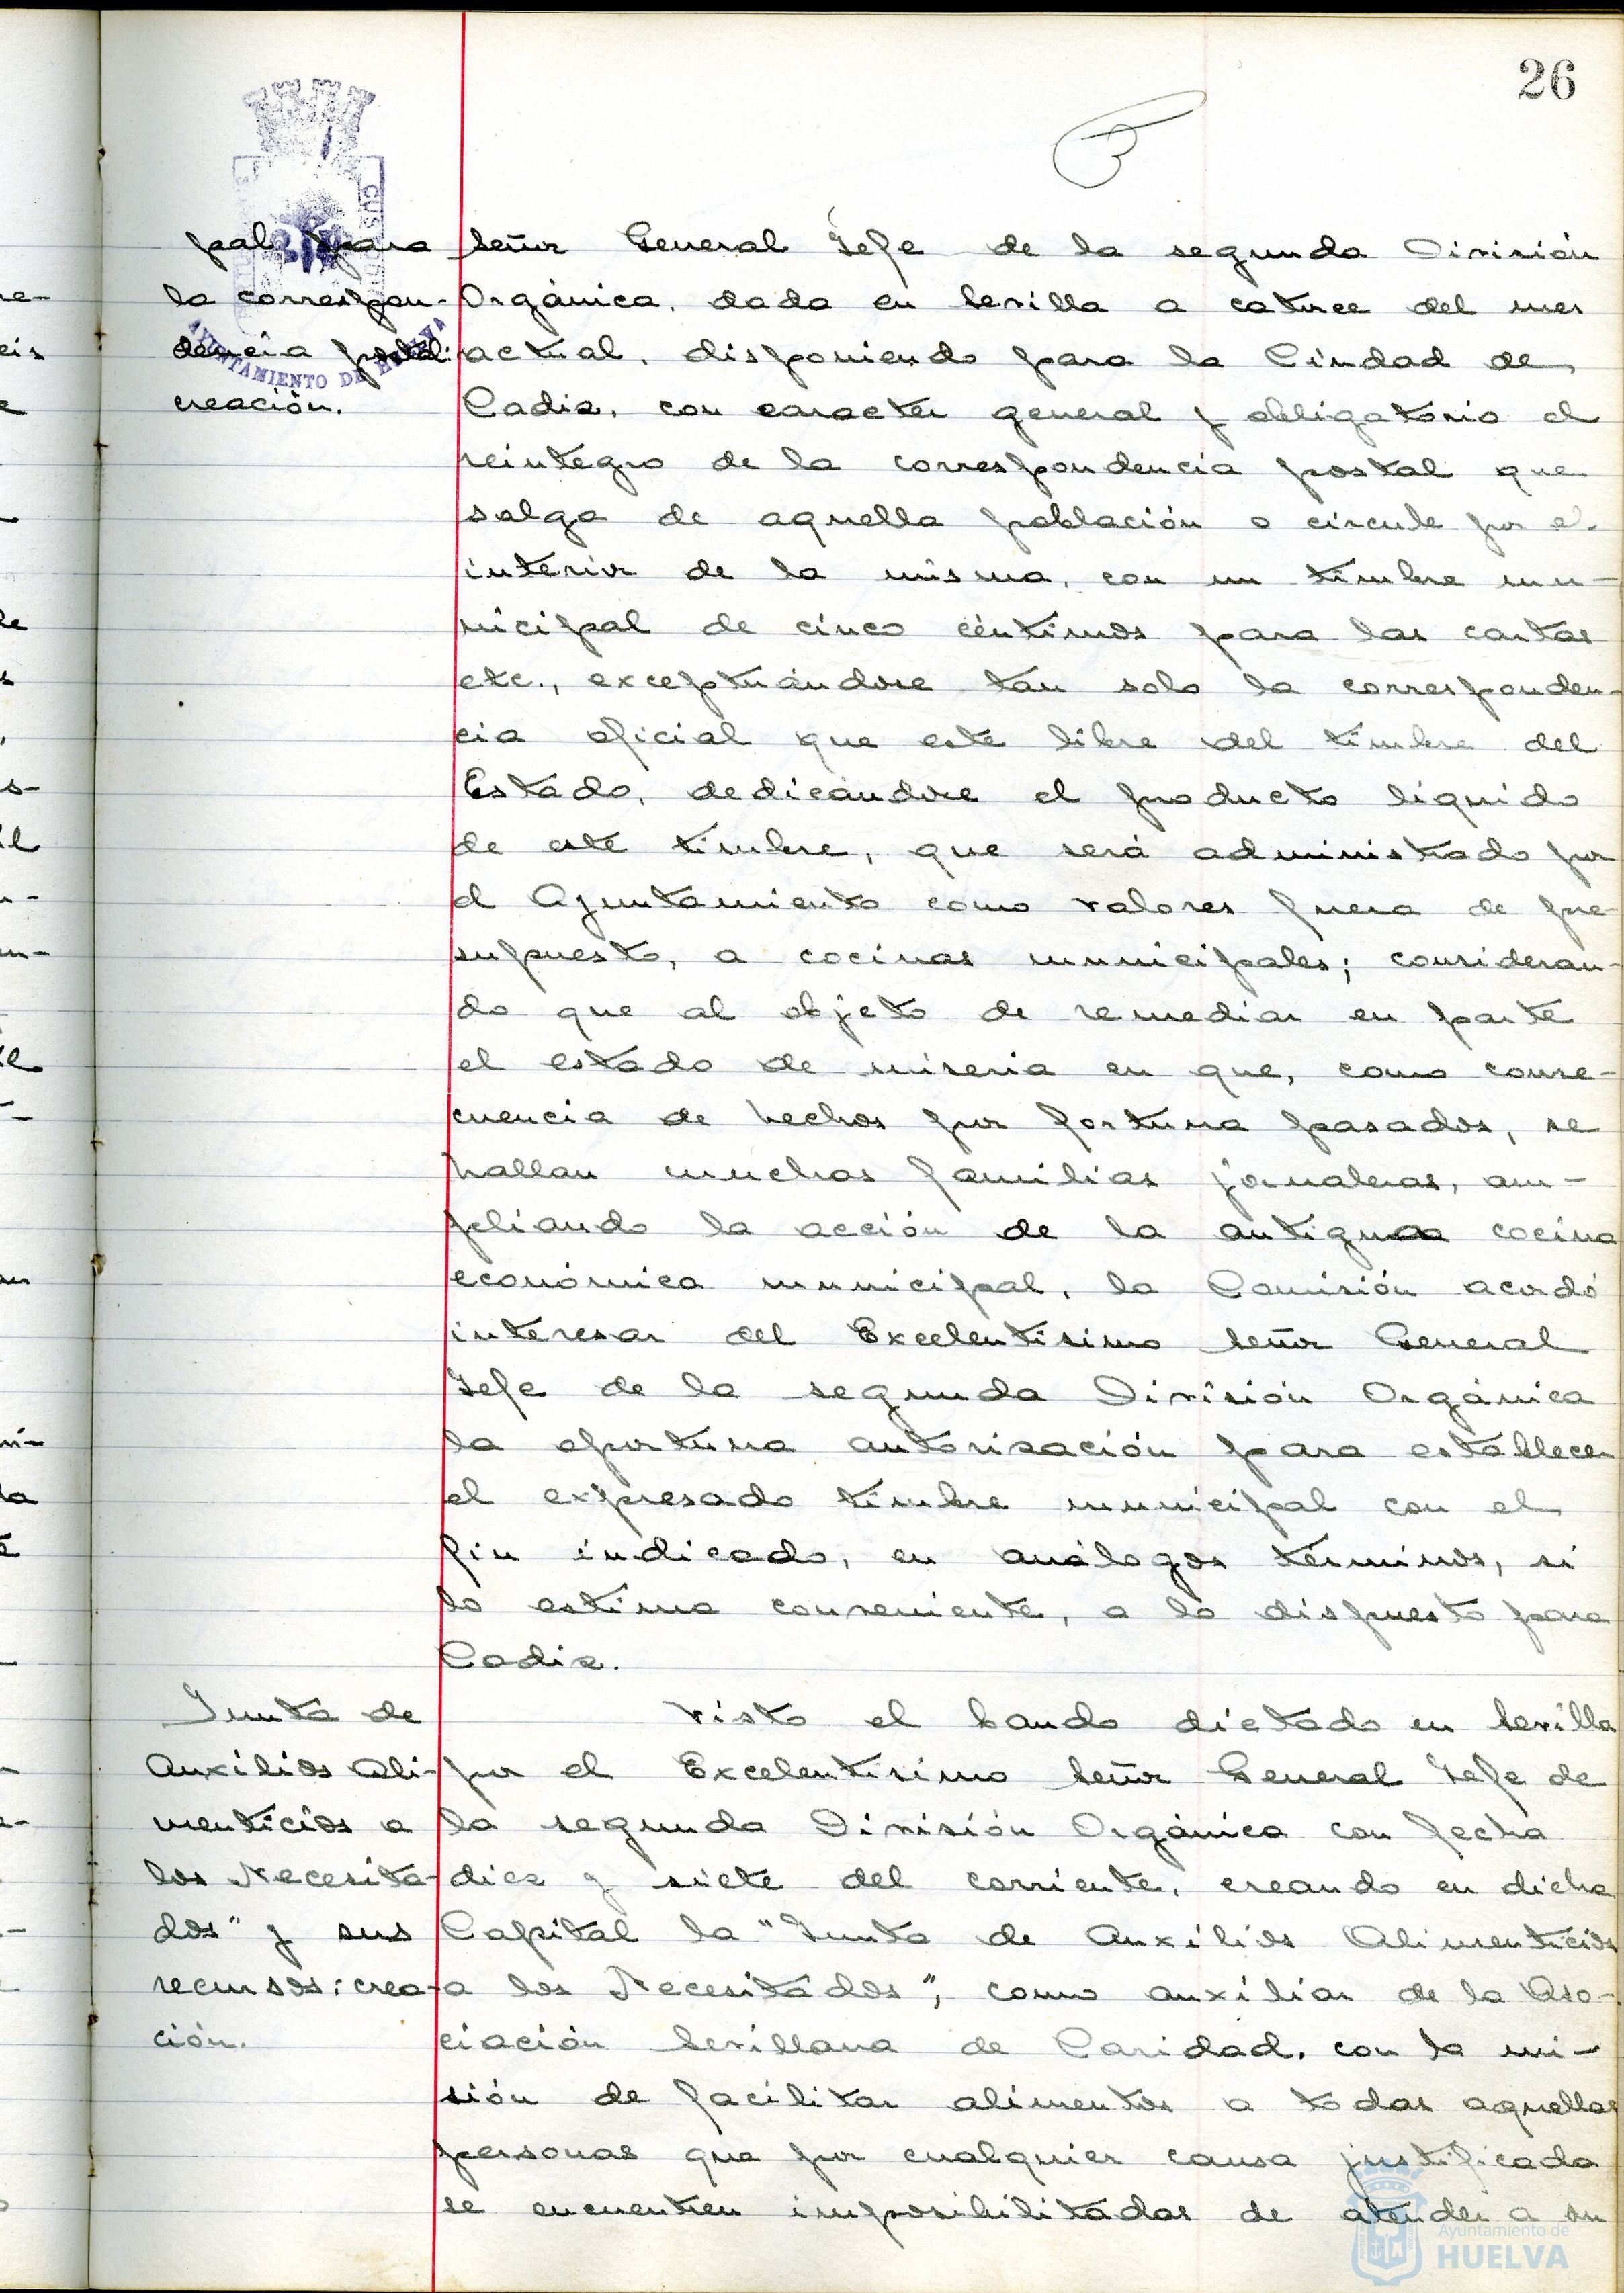 26
pal para
la correspon-
dencia postal:
creación.
AYUNTAMIENTO DE HUELVA
señor General Jefe de la segunda División
Orgánica, dada en Sevilla a catorce del mes
actual, disponiendo para la Ciudad de
Cadiz, con caracter general y obligatorio el
reintegro de la correspondencia postal que
salga de aquella población o circule por el
interior de la misma, con un timbre mu-
nicipal de cinco céntimos para las cartas
etc., exceptuándose tan solo la corresponden-
cia oficial que este libre del timbre del
Estado, dedicandose el producto liquido
de este timbre, que será administrado por
el Ayuntamiento como valores fuera de pre-
supuesto, a cocinas municipales; consideran-
do que al objeto de remediar en parte
el estado de miseria en que, como conse-
cuencia de hechos por fortuna pasados, se
hallan muchas familias jornaleras, am-
pliando la acción de la antigua cocina
económica municipal, la Comisión acordó
interesar del Excelentisimo señor General
Jefe de la segunda División Orgánica
la oportuna autorización para establecer
el expresado timbre municipal con el
fin indicado, en análogos términos, si
lo estima conveniente, a lo dispuesto para
Cadiz.
Junta de
Auxilios Ali-
menticios a
los Necesita-
dos" y sus
recursos: crea-
ción.
Visto el bando dictado en Sevilla
por el Excelentisimo señor General Jefe de
la segunda División Orgánica con fecha
diez y siete del corriente, creando en dicha
Capital la "Junta de Auxilios Alimenticios
a los Necesitados", como auxiliar de la Aso-
ciación Sevillana de Caridad, con la mi-
sión de facilitar alimentos a todas aquellas
personas que por cualquier causa justificada
se encuentren imposibilitadas de atender a su
Ayuntamiento de
HUELVA